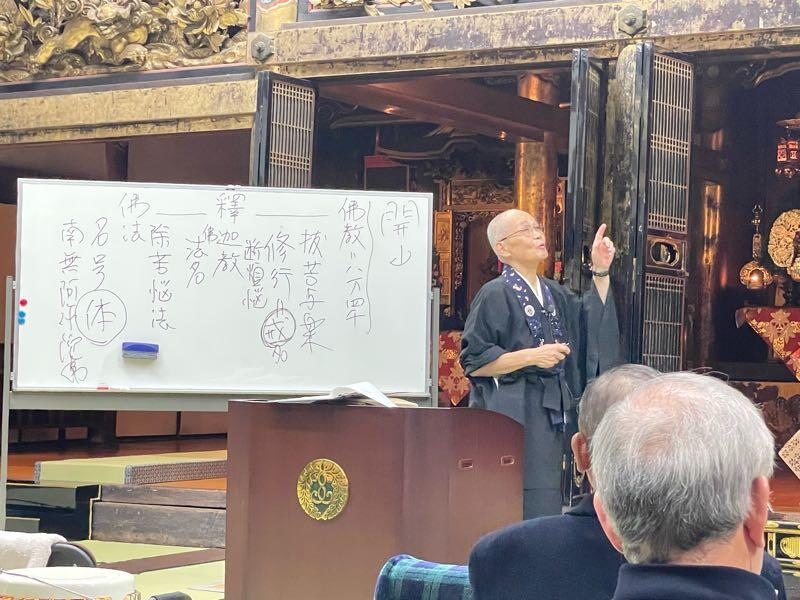 開山
佛教=八万四千
抜苦与楽
修行―戒名
断煩悩
釋迦教
佛法名
除苦悩法
佛法
名号体
南無阿弥陀佛